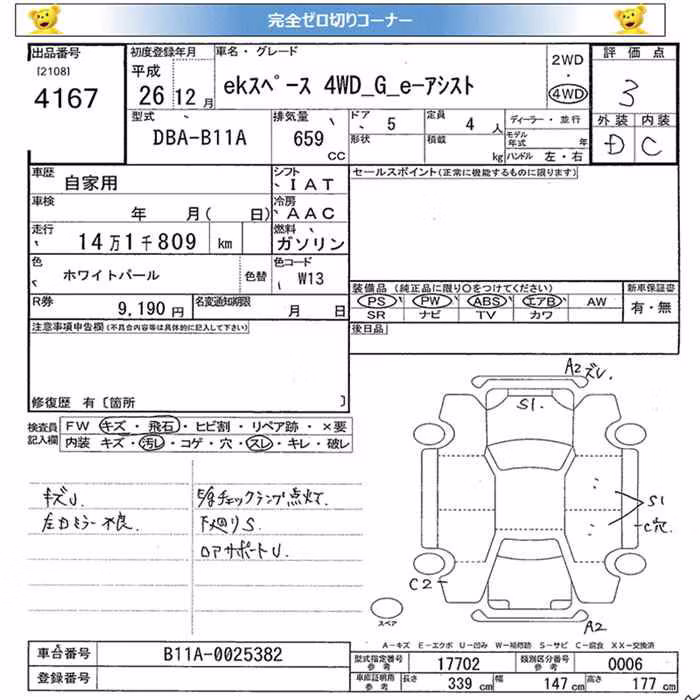 完全ゼロ切りコーナー
出品番号
[2108]
4167
初度登録年月
平成
26 12月
車名・グレード
ekスペース 4WD_G_e-アシスト
2WD
・
4WD
評価点
3
外装 内装
D C
型式
DBA-B11A
排気量
659
CC
ドア 5
形状
定員 4 人
積載 kg
ディーラー・並行
モデル年式 年
ハンドル 左・右
車歴
自家用
シフト
IAT
セールスポイント(正常に機能するものに限ります)
車検
年 月( 日)
冷房
AAC
走行
14万1千809 km
燃料
ガソリン
色
ホワイトパール
色替
色コード
W13
装備品 (純正品に限り○をつけてください)
新車保証書
PS PW ABS エアB AW
有・無
SR ナビ TV カワ
R券
9,190 円
名変通知期限
月 日
後日品
注意事項申告欄(不具合内容等は具体的に記入して下さい)
修復歴 有〔箇所 〕
検査員
記入欄
FW キズ・飛石・ヒビ割・リペア跡・×要
内装 キズ・汚レ・コゲ・穴・スレ・キレ・破レ
キズU
左Dミラー不良.
チェックランプ点灯.
下廻りS.
ロアサポートU.
A2 ズレ.
S1.
S1
C穴
C2
A2
スペア
A-キズ E-エクボ U-凹み W-補修跡 S-サビ C-腐食 XX-交換済
車台番号
B11A-0025382
登録番号
型式指定番号
参考
17702
類別区分番号
参考
0006
車庫証明用
参考
長さ 339 cm
幅 147 cm
高さ 177 cm